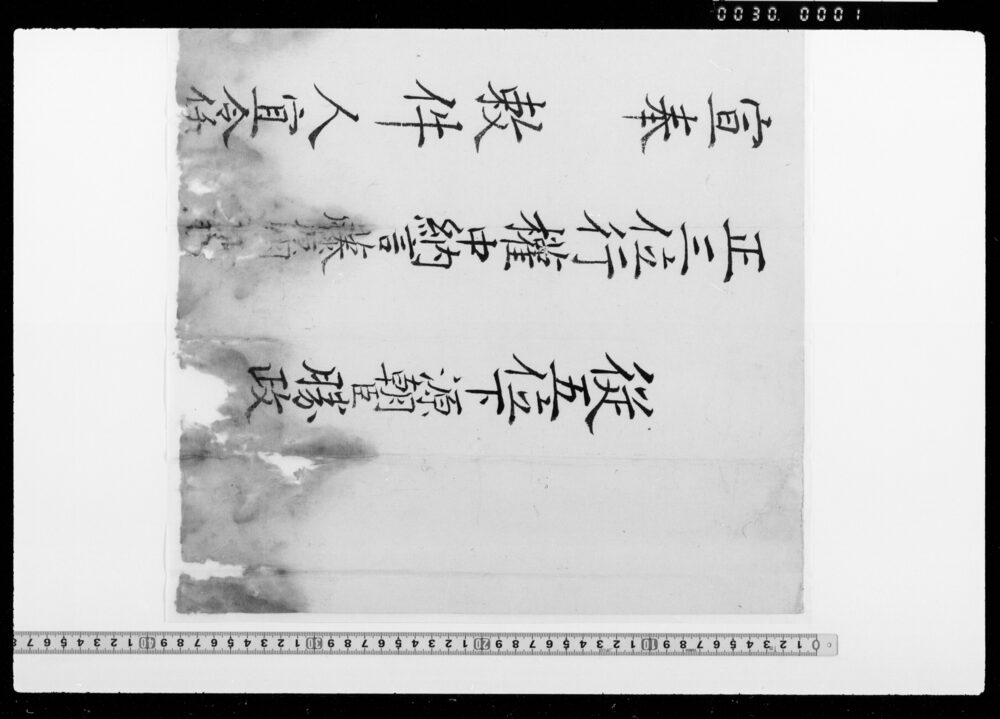 0030. 0001
從五位下源朝臣勝政
正三位行權中納言藤原朝
宣奉　敕件人宜令任